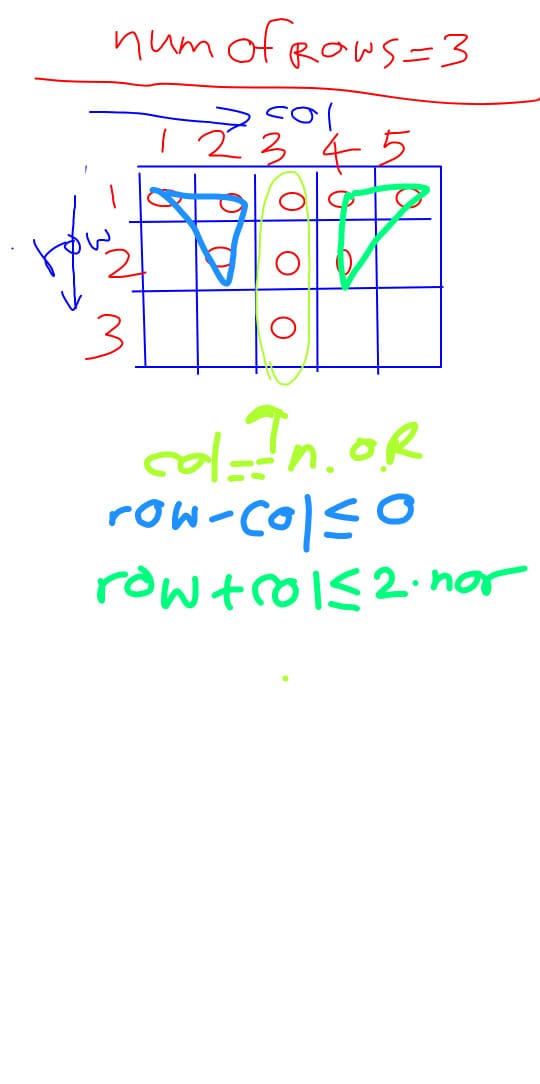 num of Rows=3
col
1 2 3 4 5
1
row
2
3
col==n.oR
row-col≤0
row+col≤2.nor